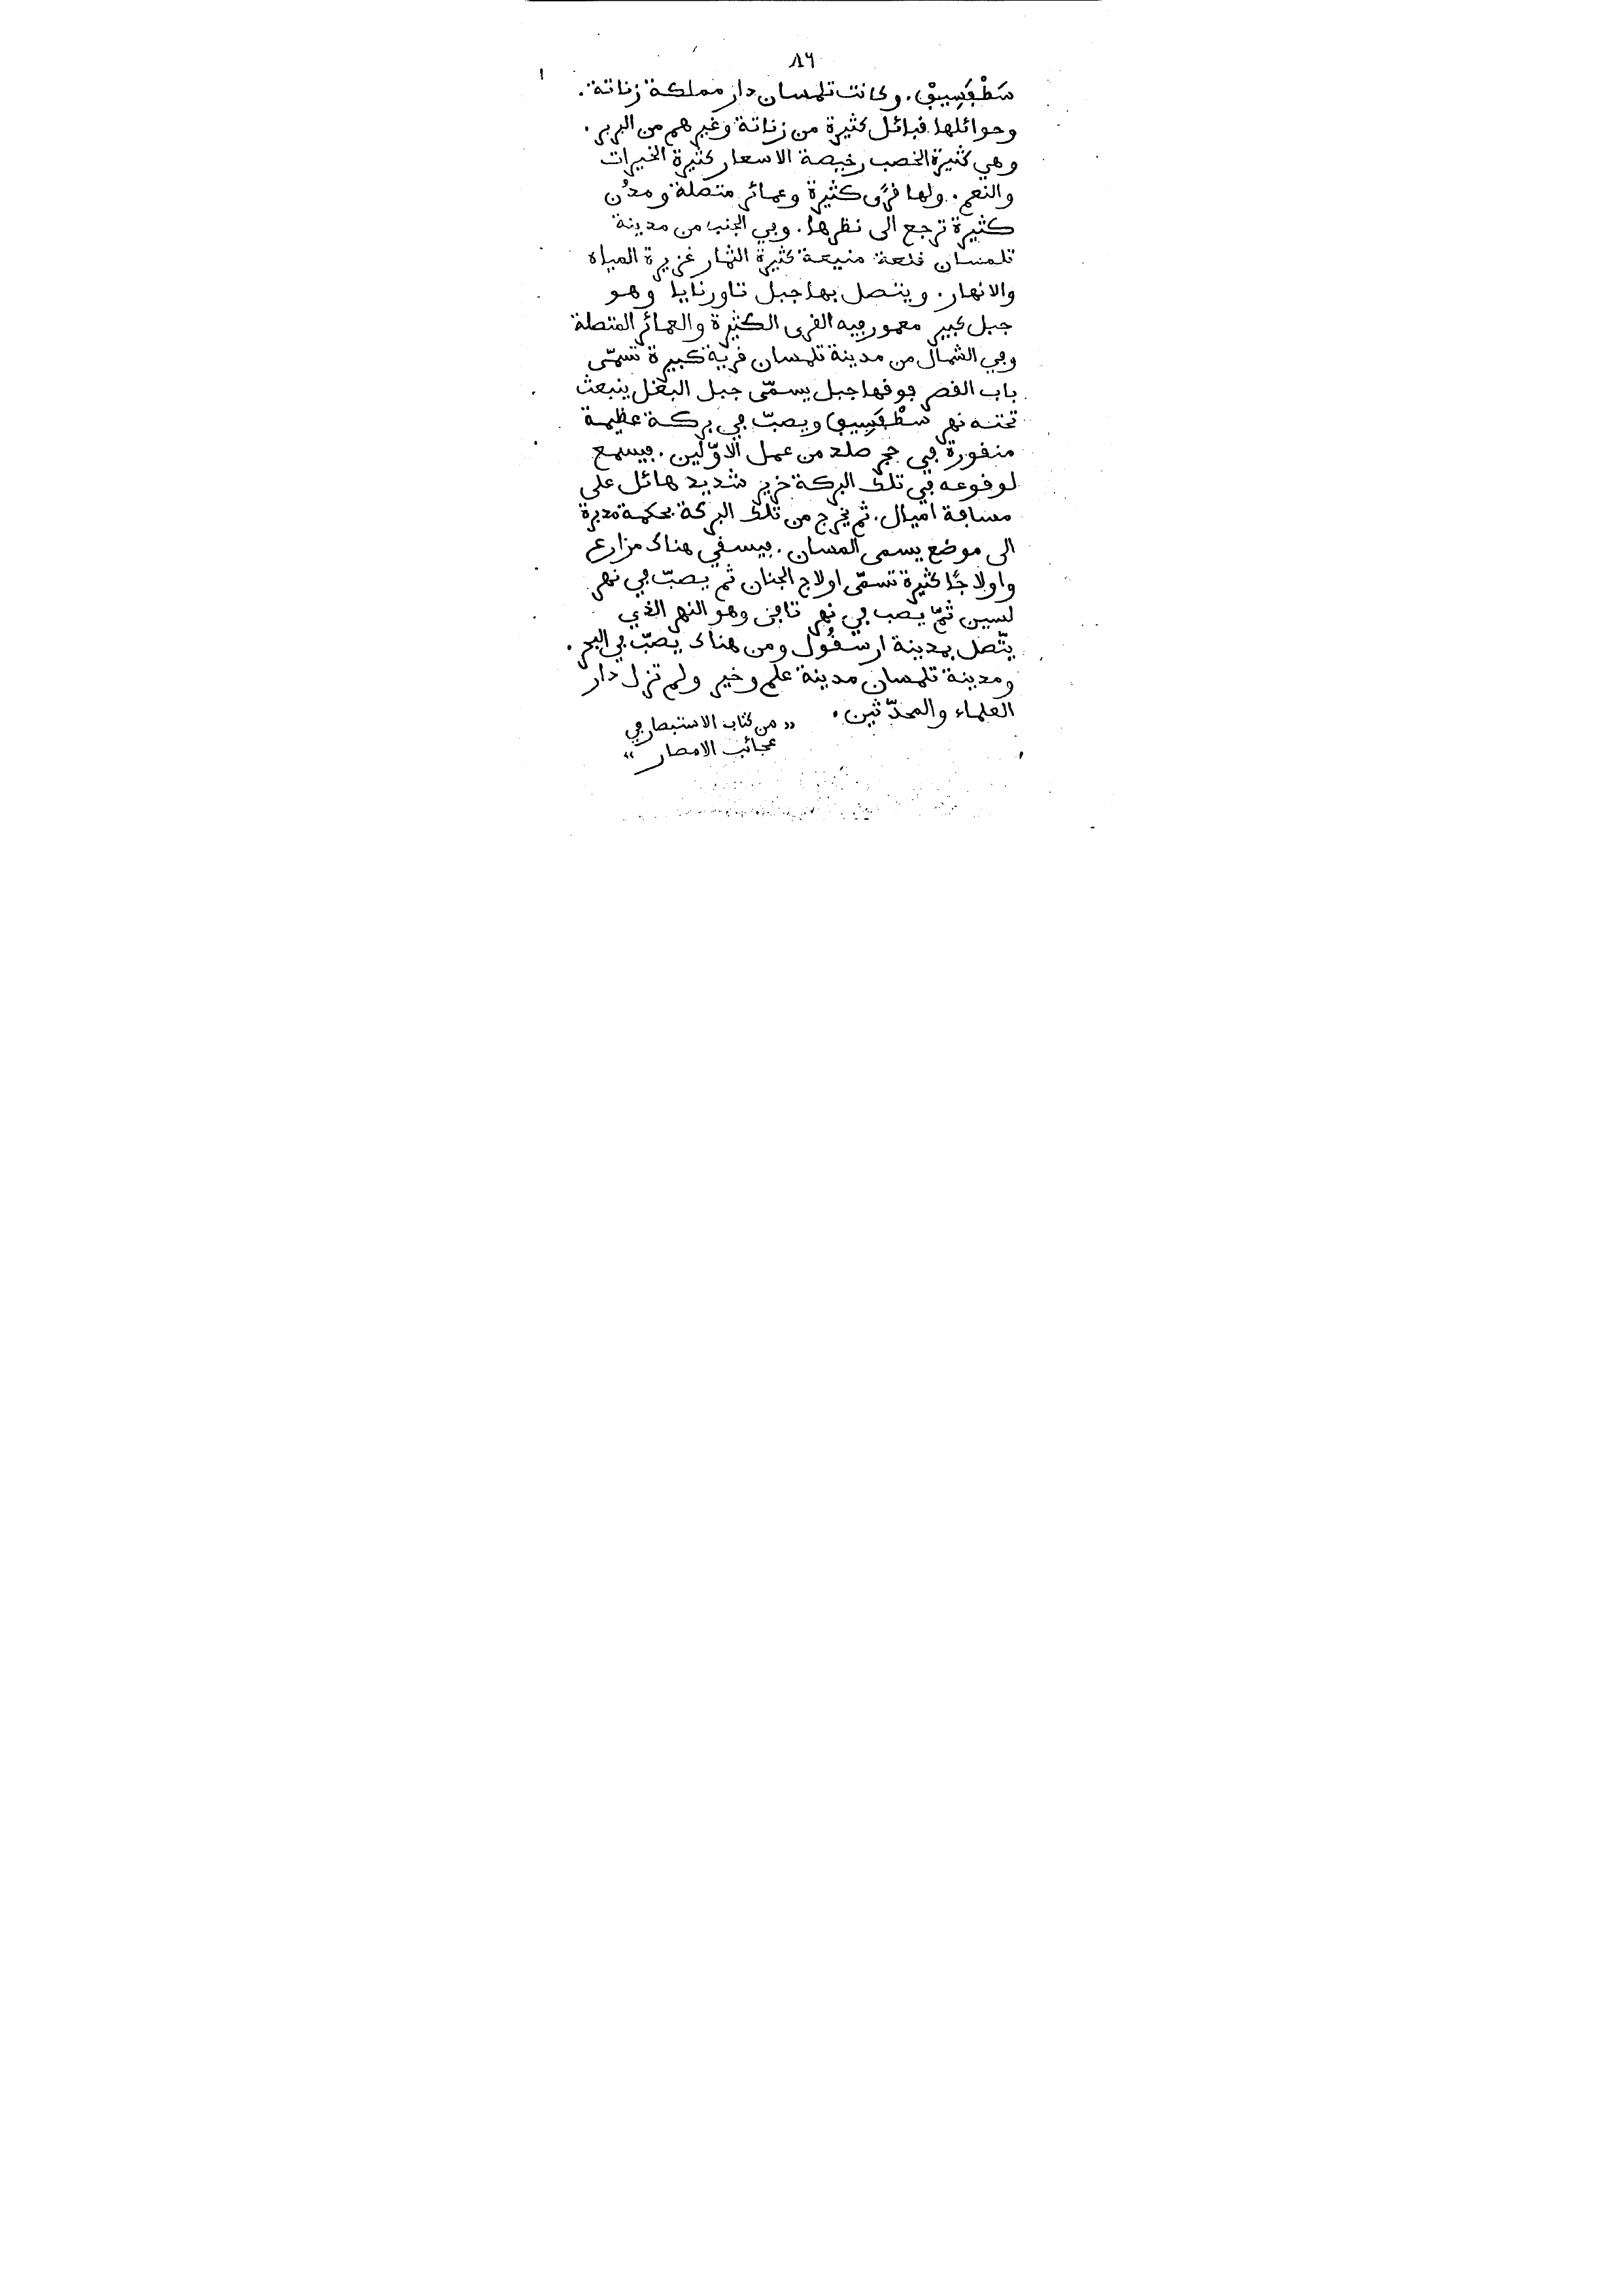 ٨٦
سَطْفَسِيفْ. وكانت تلمسان دار مملكة زناتة.
وحوائلها قبائل كثيرة من زناتة وغيرهم من البربر.
وهي كثيرة الخصب رخيصة الاسعار كثيرة الخيرات
والنعم. ولها قرًى كثيرة وعمائر متصلة ومدُن
كثيرة ترجع الى نظرها. وفي الجنب من مدينة
تلمسان قلعة منيعة كثيرة الثمار غزيرة المياه
والانهار. ويتصل بها جبل تاورنايا وهو
جبل كبير معمور فيه القرى الكثيرة والعمائر المتصلة
وفي الشمال من مدينة تلمسان قرية كبيرة تسمّى
باب القصر فوقها جبل يسمّى جبل البغل ينبعث
تحته نهر سَطْفَسِيف ويصبّ في بركة عظيمة
منقورة في حجر صلد من عمل الاوّلين. فيسمع
لوقوعه في تلك البركة خرير شديد هائل على
مسافة اميال. ثم يخرج من تلك البركة بحكمة مدبرة
الى موضع يسمى المسان. فيسقي هناك مزارع
واولاجًا كثيرة تسمّى اولاج الجنان ثم يصبّ في نهر
لسين ثمّ يصب في نهر تافنى وهو النهر الذي
يتّصل بمدينة ارسقُول ومن هناك يصبّ في البحر.
ومدينة تلمسان مدينة علم وخير ولم تزل دار
العلماء والمحدّثين.
«من كتاب الاستبصار في
عجائب الامصار»